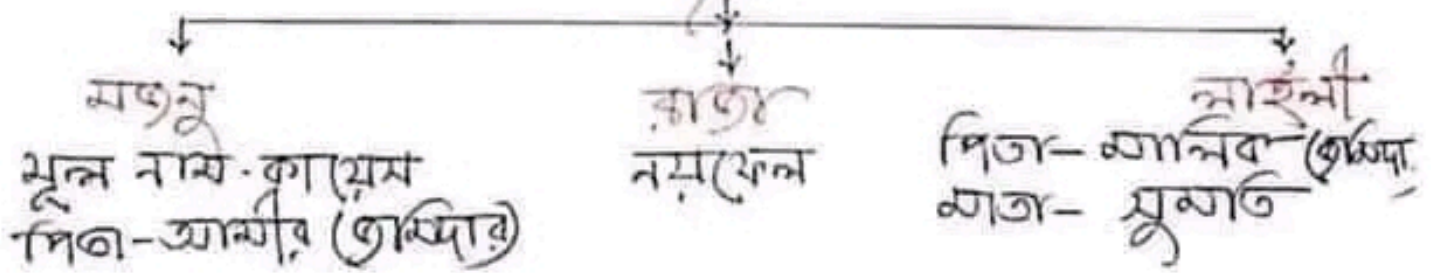 মজনু
মূল নাম - কায়েস
পিতা - আমীর (জমিদার)
রাজা
নয়ফেল
লাইলী
পিতা - মালিক (জমিদা
মাতা - সুমতি